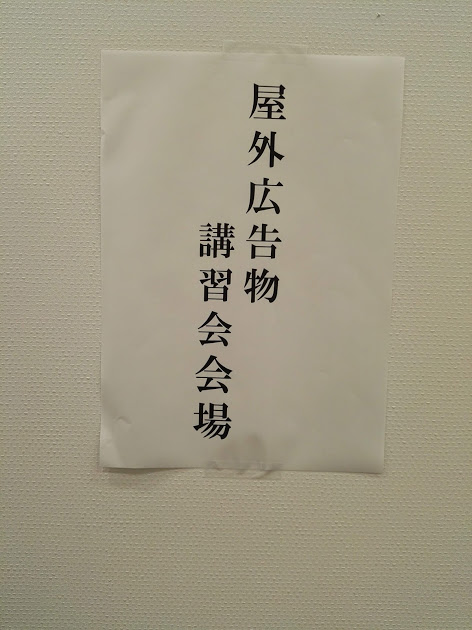 屋外広告物
講習会会場